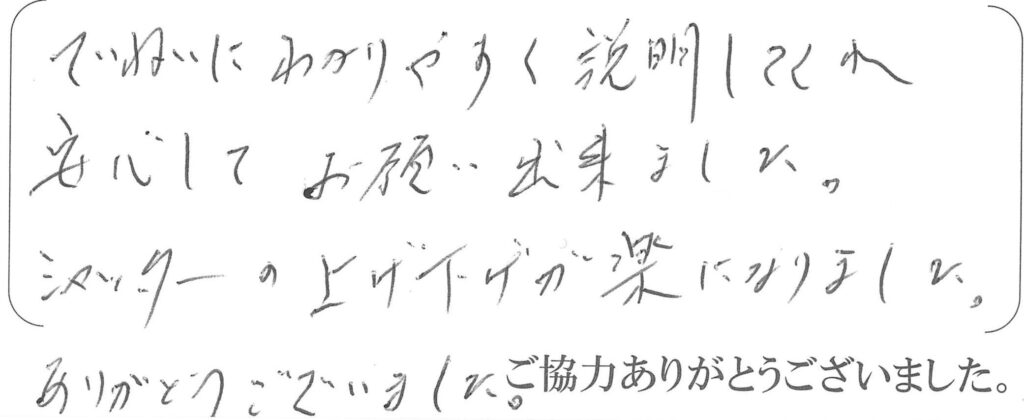 でいねいにわかりやすく説明してくれ
安心してお願い出来ました。
シャッターの上げ下げが楽になりました。
ありがとうございました。ご協力ありがとうございました。